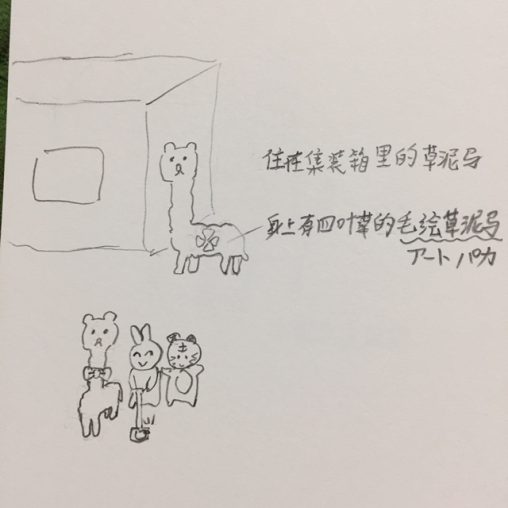 住在集装箱里的草泥马
身上有四叶草的毛绘草泥马
アートパカ